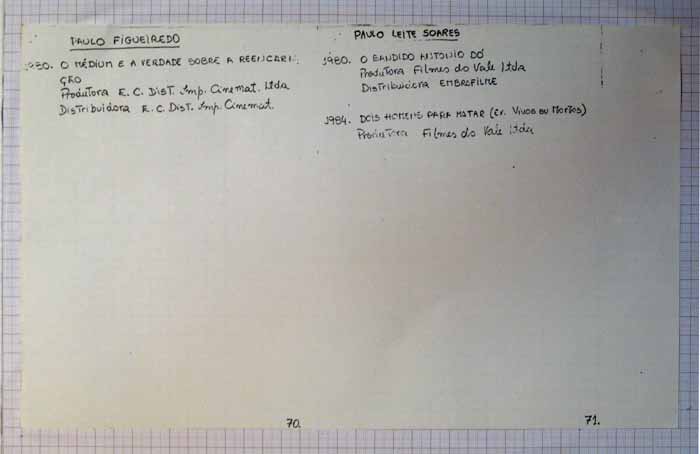 PAULO FIGUEIREDO
1980. O MÉDIUM E A VERDADE SOBRE A REENCARN
ÇÃO
Produtora E. C. Dist. Imp. Cinemat. Ltda
Distribuidora E. C. Dist. Imp. Cinemat.
70.
PAULO LEITE SOARES
1980. O BANDIDO ANTONIO DÓ
Produtora Filmes do Vale Ltda
Distribuidora EMBRAFILME
1984. DOIS HOMENS PARA MATAR (Cr. Vivos ou Mortos)
Produtora Filmes do Vale Ltda
71.